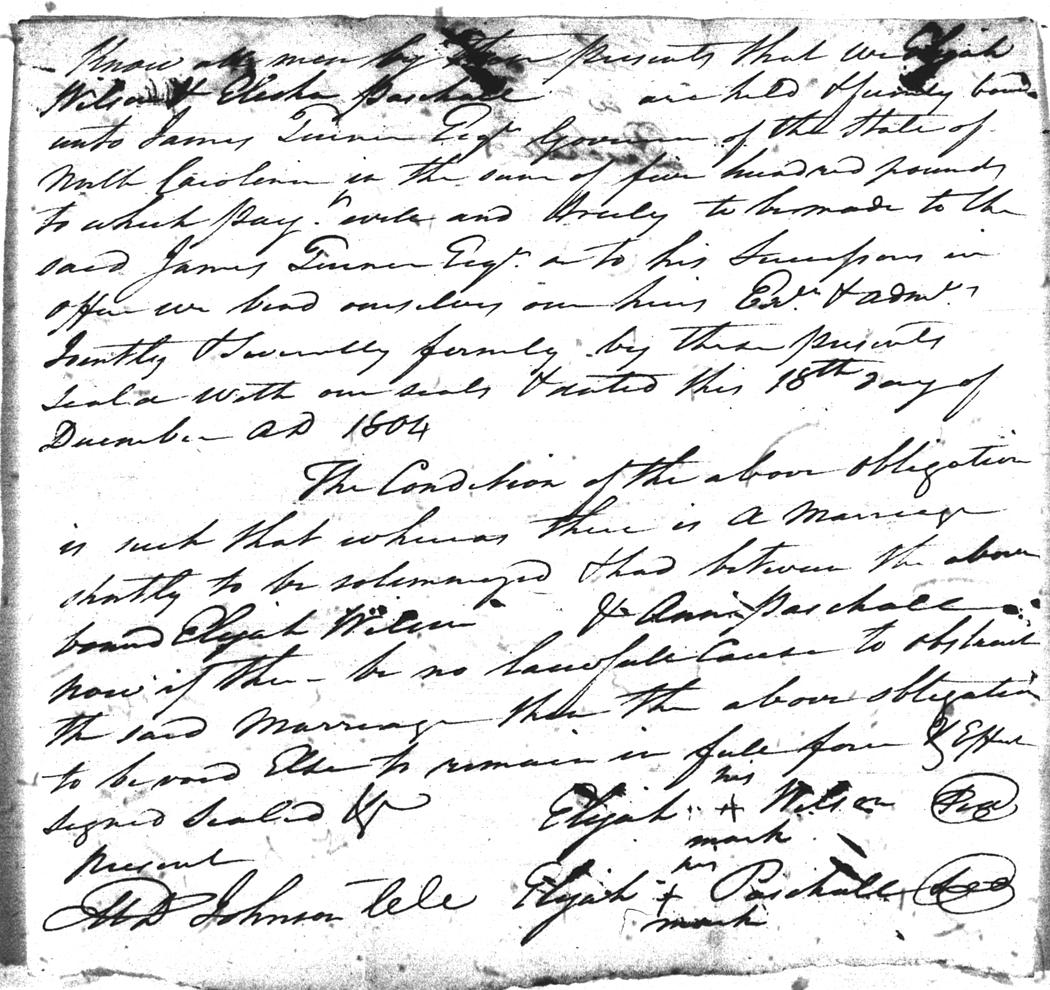 Know all men by these presents that we Elijah
Wilson & Elisha Paschall are held & firmly bound
unto James Turner Esqr Governor of the State of
North Carolina in the sum of five hundred pounds
to which paymt. well and truly to be made to the
said James Turner Esqr. or to his Successors in
office we bind ourselves our heirs Exrs. & admrs.
Jointly & Severally firmly by these presents
Seald with our seals & dated this 18th day of
December AD 1804
The Condition of the above obligation
is such that whereas there is a Marriage
shortly to be solemnized & had between the above
bound Elijah Wilson & Anna Paschall
now if there be no lawfull Cause to obstruct
the said Marriage then the above obligation
to be void Else to remain in full force & Effect
signed sealed &c
present
his
Elijah + Wilson Seal
mark
his
Elijah + Paschall Seal
mark
MD Johnson